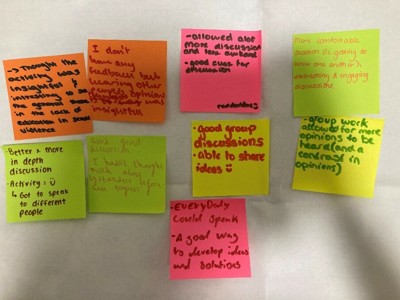 -> Thought the
activity was
insightful &
interesting to
the general
in the lack of
in sexual
violence
I don't
have any
feedback but
hearing other
people's opinions
was
insightful
-allowed a lot
more discussion
and less awkward
-good cues for
discussion
More comfortable
getting to
know one another
& engaging
discussion
• Better & more
in depth
discussion
• Activity: ü
↳ Got to speak
to different
people
good
discussion
I hadn't thought
much about
before
• good group
discussions
• able to share
ideas ☺
-group work
allowed for more
opinions to be
heard (and a
contrast in
opinions)
-everybody
could speak
-A good way
to develop ideas
and solutions